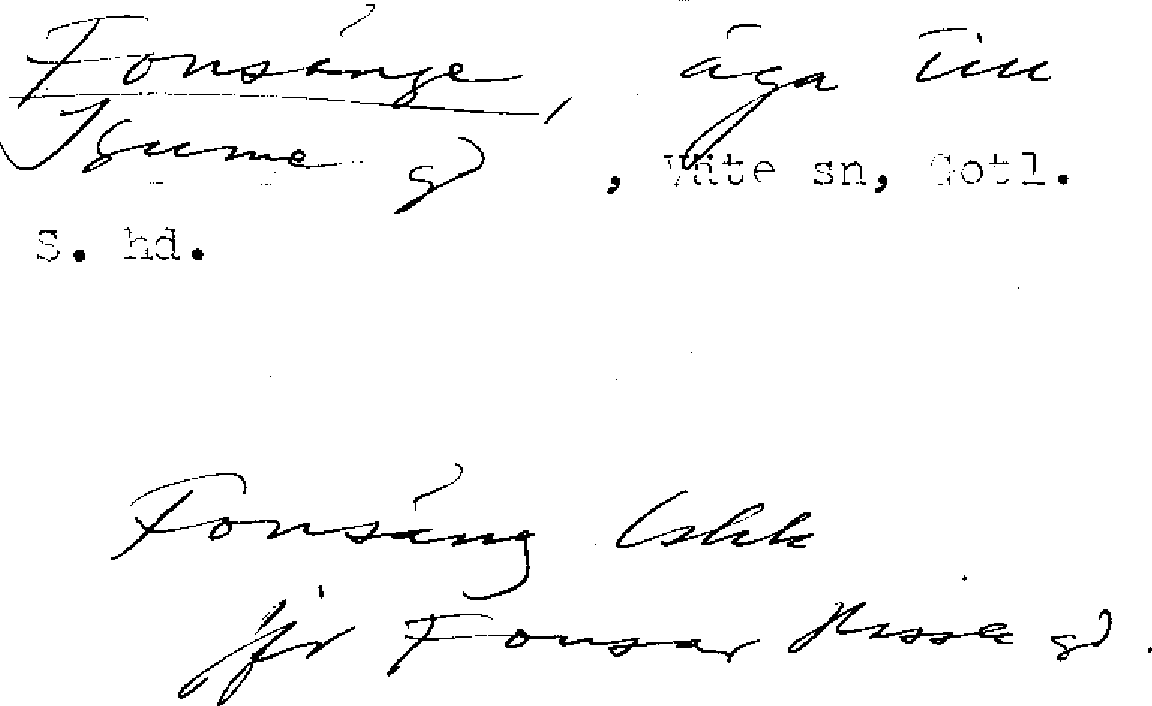 Fonsänge, äga till
Isume gd, Väte sn, Gotl.
S. hd.
Fonsäng Iskk
jfr Fonsar Hisse gd.